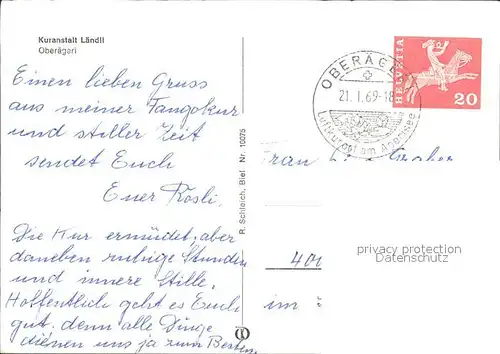 Kuranstalt Ländli
Oberägeri
Einen lieben Gruss
aus meiner Fangokur
und stiller Zeit
sendet Euch
Euer Rösli.
Die Kur ermüdet, aber
daneben ruhige Stunden
und innere Stille.
Hoffentlich geht es Euch
gut, denn alle Dinge
dienen uns ja zum Besten.
R. Schleich, Biel Nr. 10075
OBERÄGERI
21. 1. 69-18
Luftkurort am Aegerisee
HELVETIA
20
Frau
privacy protection
Datenschutz
im